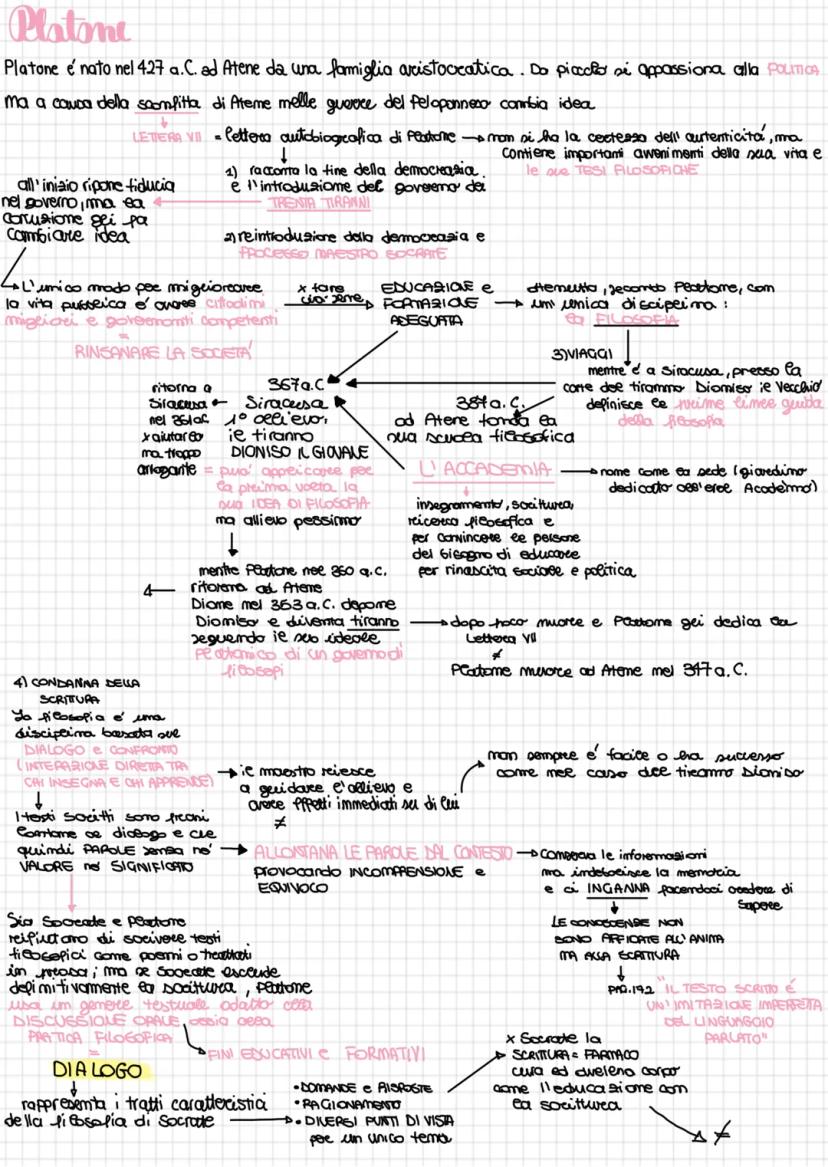 Platone
Platone é nato nel 427 a.C. ad Atene da una famiglia aristocratica. Da piccolo si appassiona alla POLITICA
ma a causa della sconfitta di Atene nelle guerre del Peloponneso cambia idea
LETTERA VII = lettera autobiografica di Platone → non si ha la certezza dell'autenticitá, ma
contiene importanti avvenimenti della sua vita e
le sue TESI FILOSOFICHE
1) racconta la fine della democrazia
e l'introduzione del governo dei
TRENTA TIRANNI
all'inizio ripone fiducia
nel governo, ma la
corruzione gli fa
cambiare idea
2) reintroduzione della democrazia e
PROCESSO MAESTRO SOCRATE
L'unico modo per migliorare
la vita pubblica é avere cittadini
migliori e governanti competenti
=
RINSANARE LA SOCIETÁ
x fare
ciò serve
EDUCAZIONE e
FORMAZIONE
ADEGUATA
ottenuta, secondo Platone, con
un'unica disciplina:
la FILOSOFIA
3) VIAGGI
mentre é a Siracusa, presso la
corte del tiranno Dioniso il Vecchio
definisce le prime linee guida
della filosofia
387 a.C.
ad Atene fonda la
sua scuola filosofica
L'ACCADEMIA → nome come la sede (giardino
dedicato all'eroe Academo)
insegnamento, scrittura,
ricerca filosofica e
per convincere le persone
del bisogno di educare
per rinascita sociale e politica
367 a.C
Siracusa
1° allievo:
il tiranno
DIONISO IL GIOVALE
= puo' applicare per
la prima volta la
sua IDEA DI FILOSOFIA
ma allievo pessimo
ritorna a
Siracusa
nel 361 a.C
x aiutarlo
ma troppo
arrogante
mentre Platone nel 360 a.C.
ritorna ad Atene
Dione nel 353 a.C. depone
Dioniso e diventa tiranno
seguendo il suo ideale
platonico di un governo di
filosofi
dopo poco muore e Platone gli dedica la
Lettera VII
≠
Platone muore ad Atene nel 347 a.C.
4) CONDANNA DELLA
SCRITTURA
La filosofia é una
disciplina basata sul
DIALOGO e CONFRONTO
(INTERAZIONE DIRETTA TRA
CHI INSEGNA E CHI APPRENDE)
il maestro riesce
a guidare l'allievo e
avere effetti immediati su di lui
≠
non sempre é facile o ha successo
come nel caso del tiranno Dioniso
I testi scritti sono
quindi PAROLE senza né
VALORE né SIGNIFICATO
ALLONTANA LE PAROLE DAL CONTESTO
provocando INCOMPRENSIONE e
EQUIVOCO
conserva le informazioni
ma indebolisce la memoria
e ci INGANNA facendoci credere di
sapere
LE CONOSCENZE NON
SONO AFFIDATE ALL'ANIMA
MA ALLA SCRITTURA
PAG.142 "IL TESTO SCRITTO É
UN'IMITAZIONE IMPERFETTA
DEL LINGUAGGIO
PARLATO"
Sia Socrate e Platone
rifiutano di scrivere testi
filosofici come poemi o trattati
in prosa; ma se Socrate esclude
definitivamente la scrittura, Platone
usa un genere testuale adatto alla
DISCUSSIONE ORALE ossia alla
PRATICA FILOSOFICA
=
FINI EDUCATIVI e FORMATIVI
DIALOGO
rappresenta i tratti caratteristici
della filosofia di Socrate
• DOMANDE e RISPOSTE
• RAGIONAMENTO
• DIVERSI PUNTI DI VISTA
per un unico tema
x Socrate la
SCRITTURA = FARMACO
cura ed avvelena corpo
come l'educazione con
la scrittura
≠